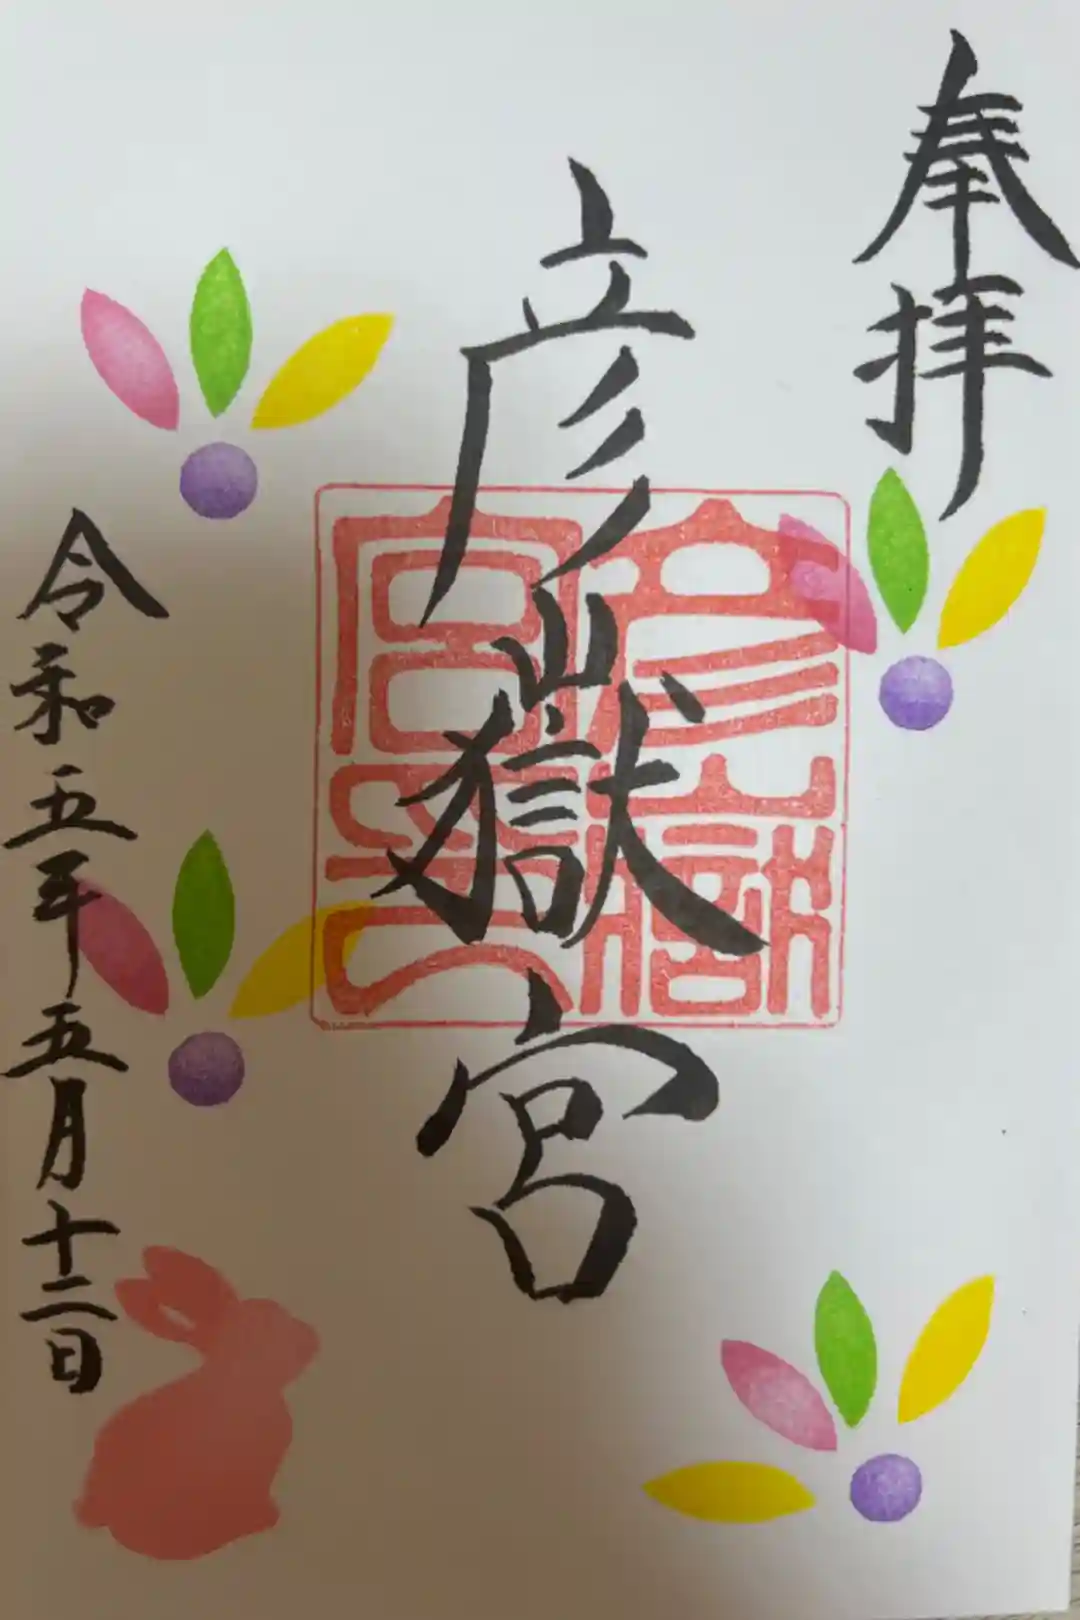 奉拝
彦嶽宮
彦嶽宮
令和五年五月十二日